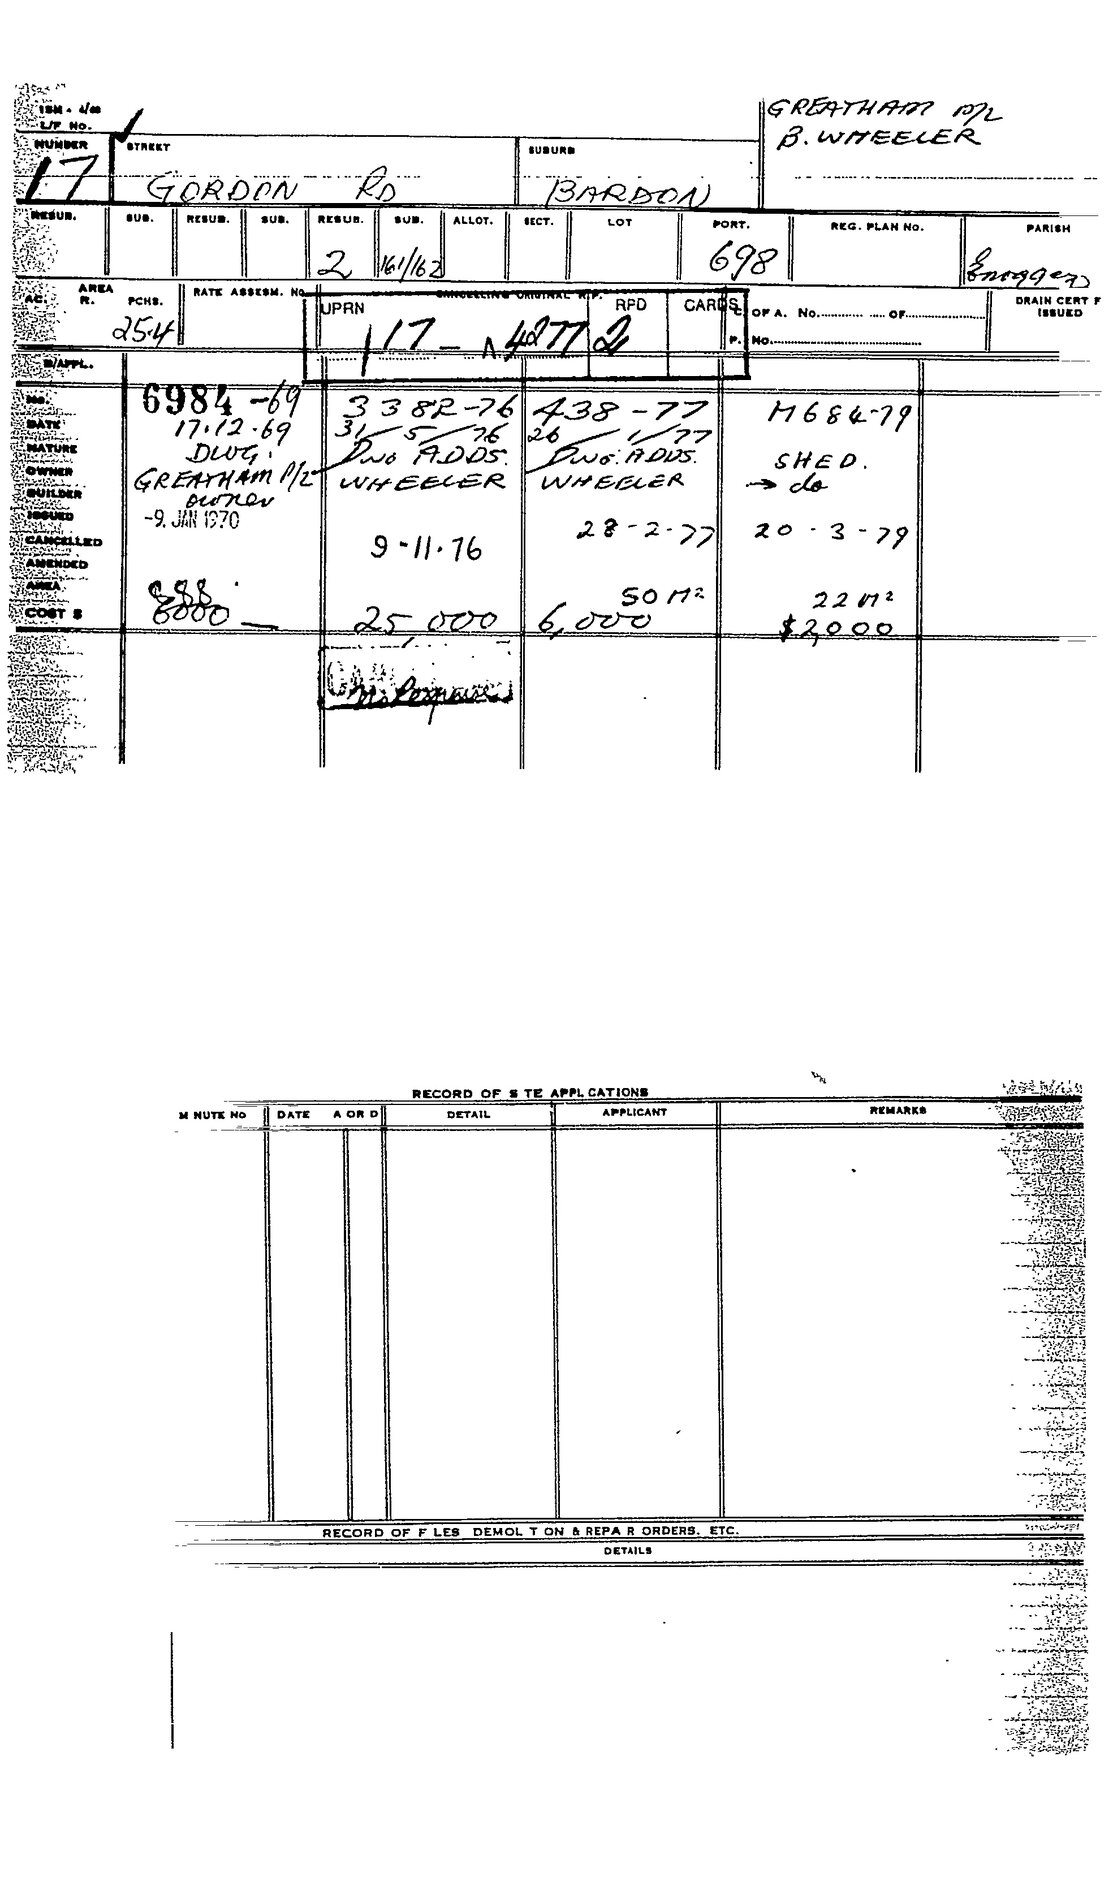 15M - 4/68
L/F No.
GREATHAM P/L
B. WHEELER
NUMBER STREET SUBURB
17 GORDON RD BARDON
RESUB. SUB. RESUB. SUB. RESUB. SUB. ALLOT. SECT. LOT PORT. REG. PLAN No. PARISH
2 161/162 698 Enoggera
AC. AREA R. PCHS. RATE ASSESM. No. CANCELLING ORIGINAL R.P. DRAIN CERT F ISSUED
25.4
UPRN RPD CARDS
117 - A 4277 2
C. OF A. No. OF
P. No.
B/APPL.
No. 6984-69 3382-76 438-77 M684-79
DATE 17.12.69 31/5/76 26/1/77
NATURE DWG. DWG ADDS. DWG. ADDS. SHED.
OWNER GREATHAM P/L WHEELER WHEELER → do
BUILDER owner
ISSUED -9. JAN 1970 28-2-77 20-3-79
CANCELLED 9-11-76
AMENDED
AREA 888 50 M² 22 M²
COST $ 8000 — 25,000 6,000 $2,000
RECORD OF S TE APPL CATIONS
M NUTE No DATE A OR D DETAIL APPLICANT REMARKS
RECORD OF F LES DEMOL T ON & REPA R ORDERS, ETC.
DETAILS